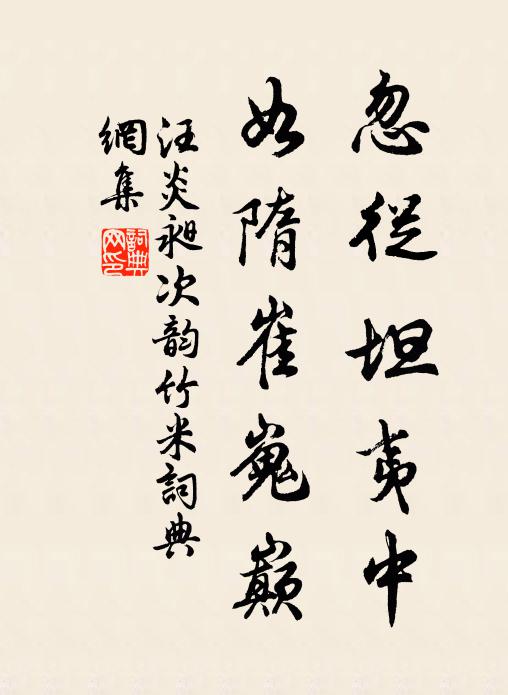 忽從坦夷中
如隋崔嵬巔
汪炎昶次韵竹米詞典
網集
詞典
网印